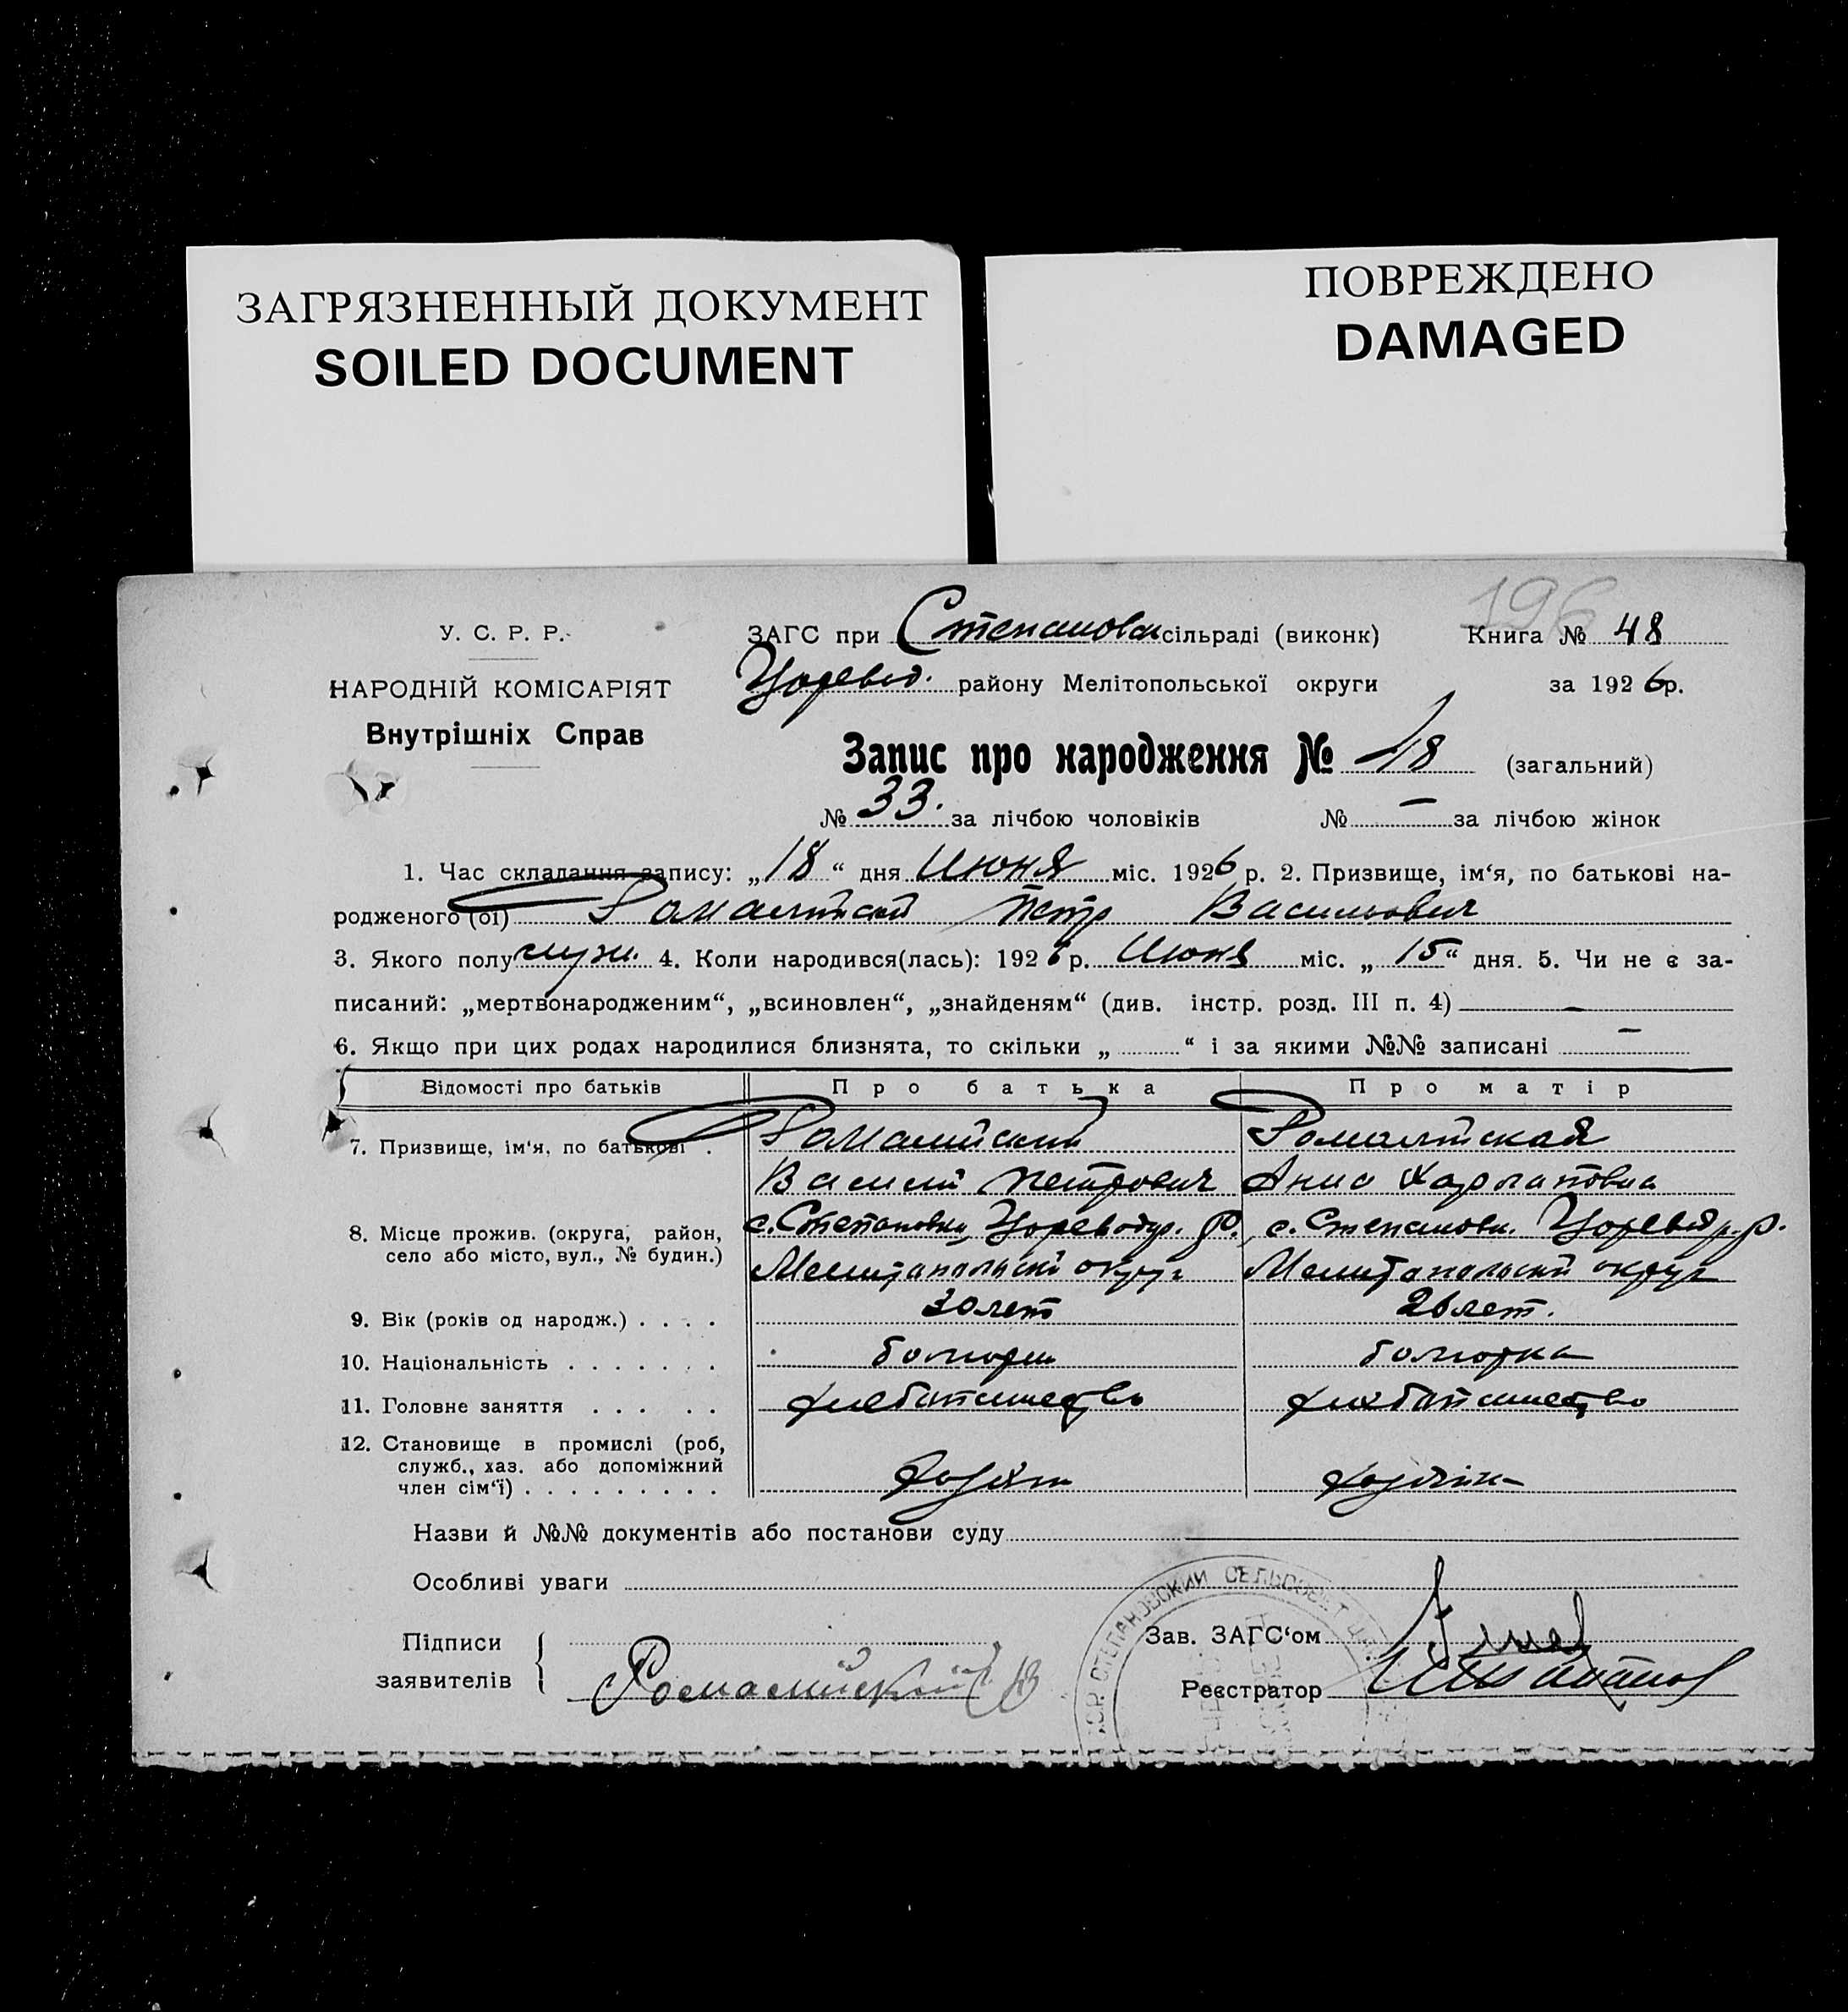 ЗАГРЯЗНЕННЫЙ ДОКУМЕНТ
SOILED DOCUMENT
ПОВРЕЖДЕНО
DAMAGED
196
У. С. Р. Р.
НАРОДНІЙ КОМІСАРІЯТ
Внутрішніх Справ
ЗАГС при Степановск сільраді (виконк) Книга № 48
району Мелітопольської округи за 1926 р.
Запис про народження № 48 (загальний)
№ 33. за лічбою чоловіків № — за лічбою жінок
1. Час складання запису: „18“ дня Июня міс. 1926 р. 2. Призвище, ім‘я, по батькові на-
родженого (ої) Романийский Петр Васильевич
3. Якого полу муж. 4. Коли народився(лась): 1926 р. Июня міс. „15“ дня. 5. Чи не є за-
писаний: „мертвонародженим“, „всиновлен“, „знайденям“ (див. інстр. розд. III п. 4) —
6. Якщо при цих родах народилися близнята, то скільки „ “ і за якими №№ записані —
Відомості про батьків Про батька Про матір
7. Призвище, ім‘я, по батькові . Василий Петрович Анна Харлаповна
8. Місце прожив. (округа, район,
село або місто, вул., № будин.)
с. Степановки, Цареводар. р. с. Степановки. Царевод р. р.
Мелитопольский округ Мелитопольский округ
9. Вік (років од народж.) . . . . 30 лет 26 лет.
10. Національність . . . . . . . болгарин болгарка
11. Головне заняття . . . . . хлебопашество хлебопашество
12. Становище в промислі (роб,
служб., хаз. або допоміжний
член сім‘ї) . . . . . . . . . хозяин хозяйка
Назви й №№ документів або постанови суду
Особливі уваги
Підписи
заявителів
Зав. ЗАГС‘ом
Реєстратор
СТЕПАНОВСКИЙ СЕЛЬСОВЕТ